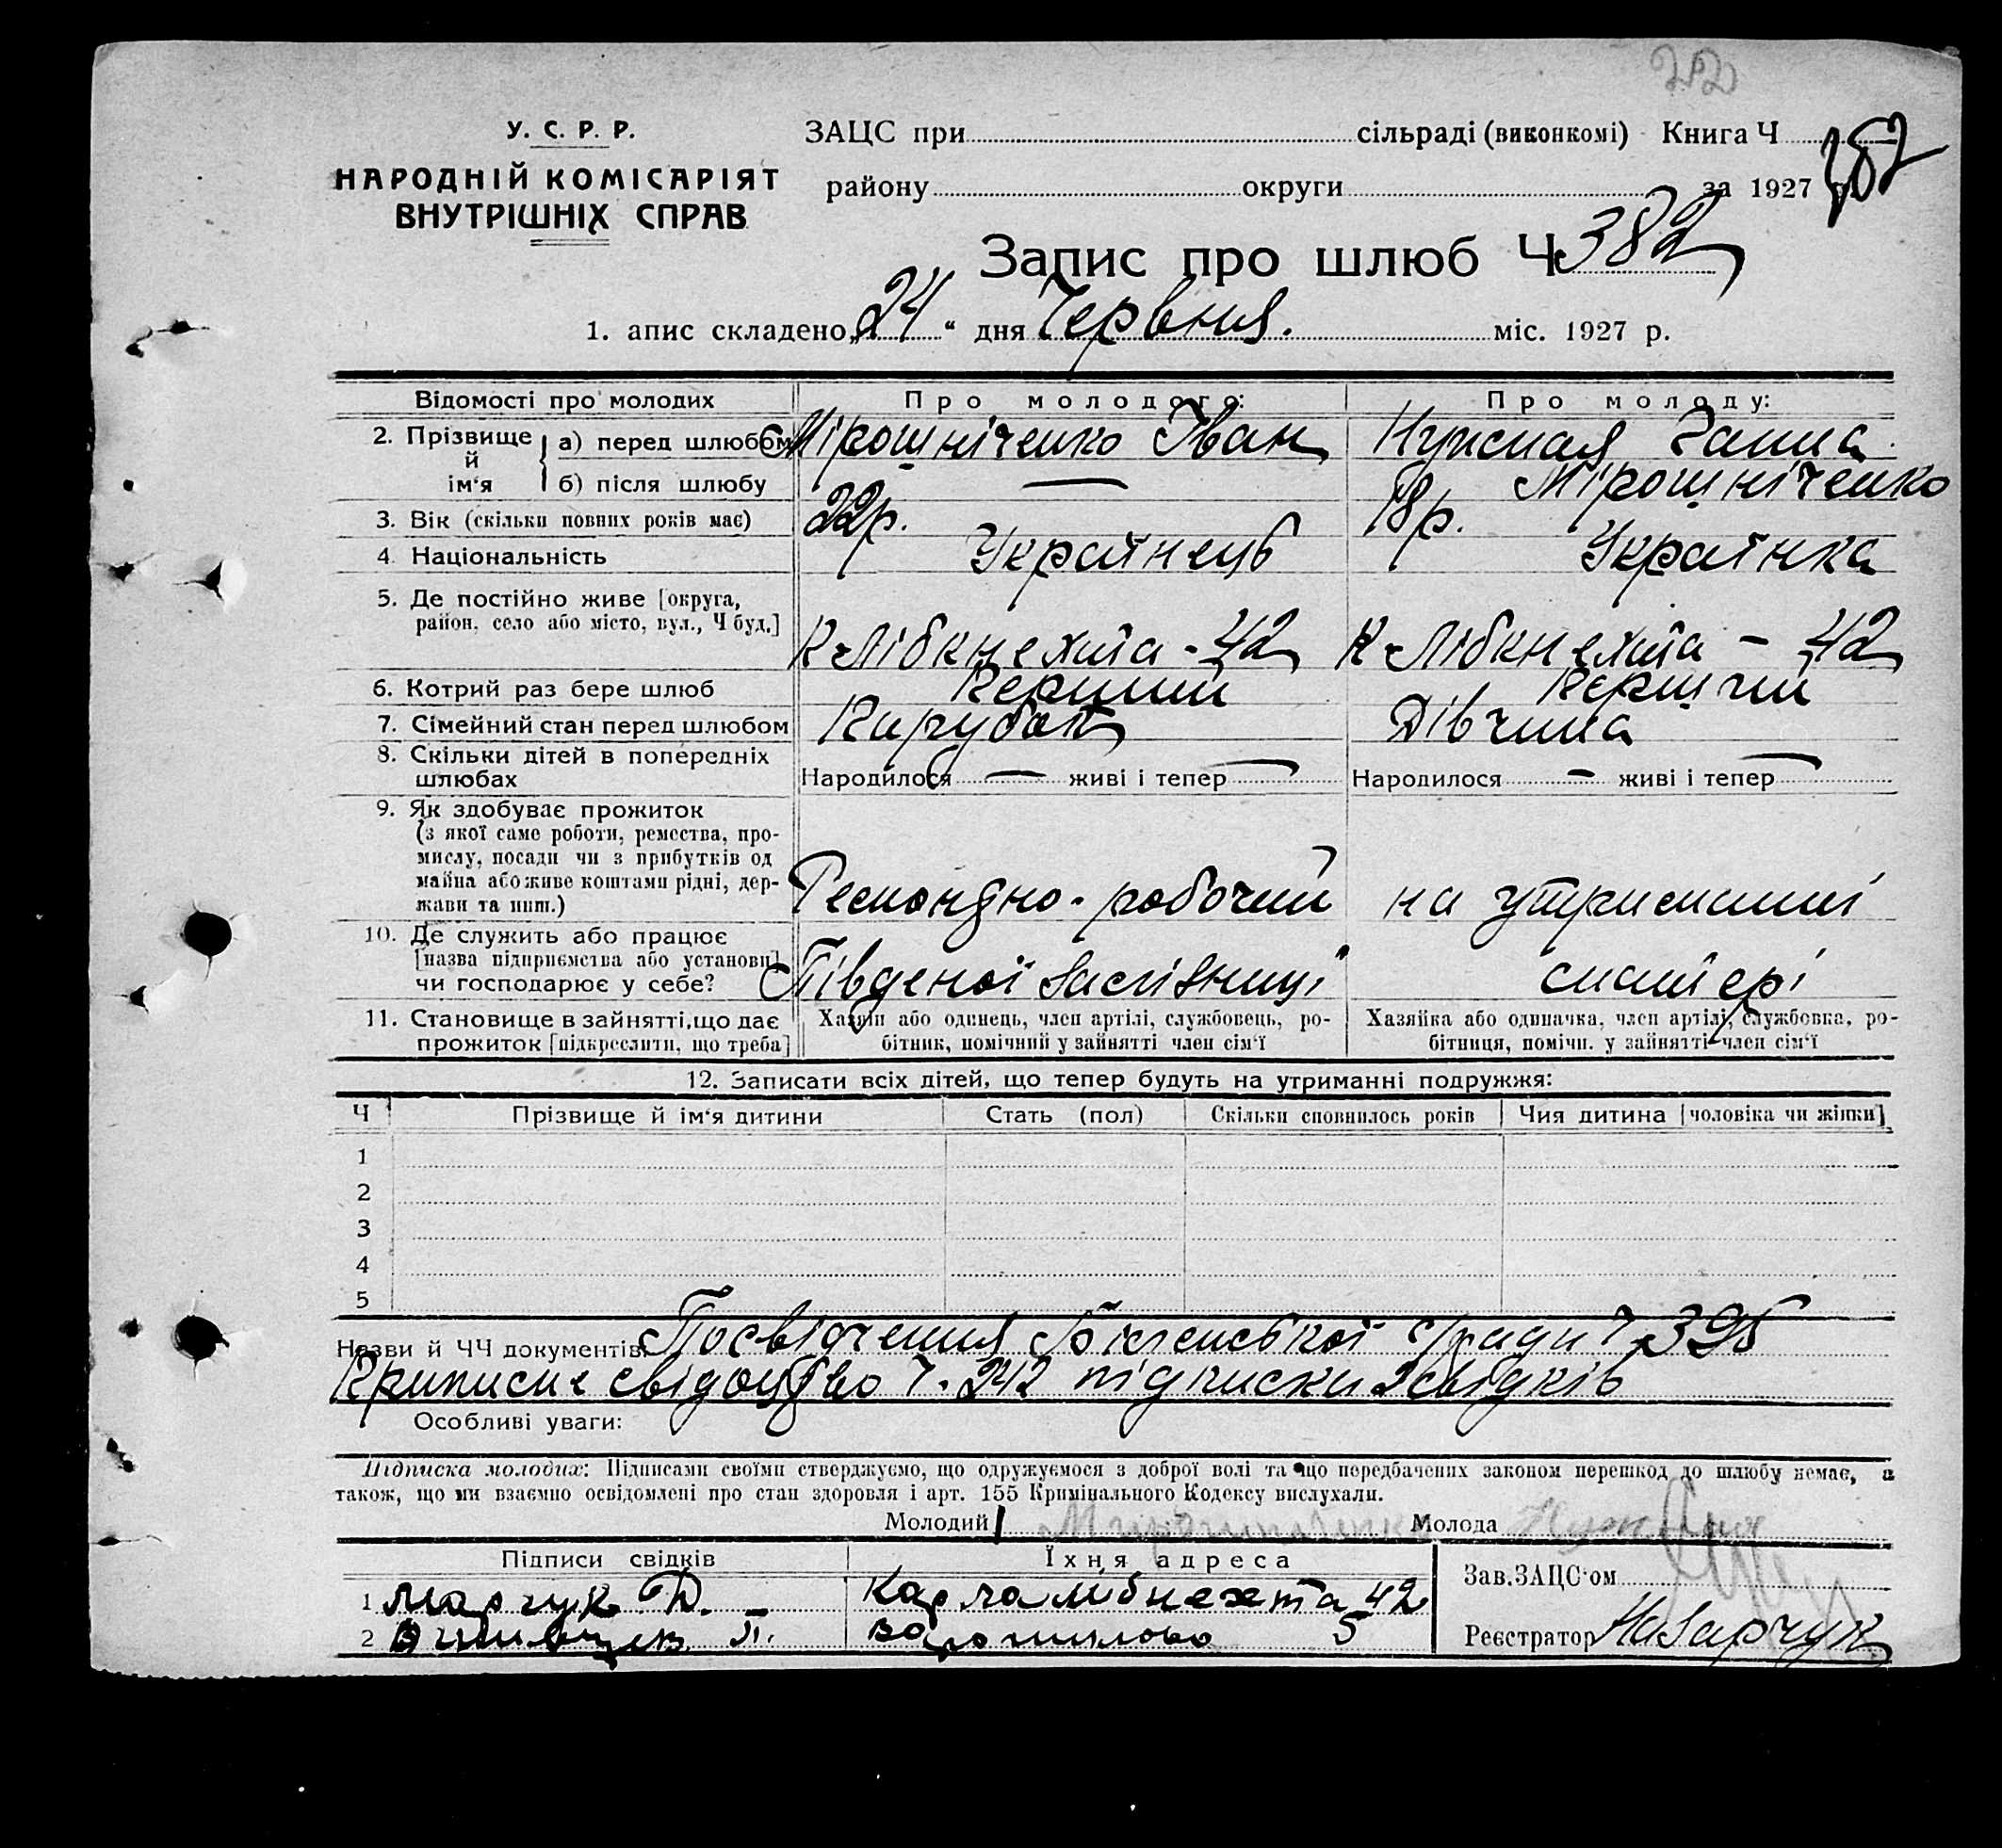 У. С. Р. Р.
НАРОДНІЙ КОМІСАРІЯТ
ВНУТРІШНІХ СПРАВ
ЗАЦС при сільраді (виконкомі) Книга Ч
району округи за 1927
Запис про шлюб Ч 382
1. апис складено „24“ дня Червня. міс. 1927 р.
Відомості про молодих Про молодого: Про молоду:
2. Прізвище й ім‘я а) перед шлюбом Мірошніченко Іван Нужная Ганна
б) після шлюбу — Мірошніченко
3. Вік (скільки повних років має) 22р. 18р.
4. Національність Українець Українка
5. Де постійно живе [округа,
район, село або місто, вул., Ч буд.] К Лібкнехта - 42 К Лібкнехта - 42
6. Котрий раз бере шлюб Перший Перший
7. Сімейний стан перед шлюбом Парубок Дівчина
8. Скільки дітей в попередніх
шлюбах Народилося — живі і тепер — Народилося — живі і тепер —
9. Як здобуває прожиток
(з якої саме роботи, ремества, про-
мислу, посади чи з прибутків од
майна або живе коштами рідні, дер-
жави та инш.) робочий на утриманні
10. Де служить або працює
[назва підприємства або установи]
чи господарює у себе? Південої матері
11. Становище в зайнятті, що дає
прожиток [підкреслити, що треба]
Хазяїн або одинець, член артілі, службовець, ро-
бітник, помічний у зайнятті член сім‘ї
Хазяйка або одиначка, член артілі, службовка, ро-
бітниця, помічн. у зайнятті член сім‘ї
12. Записати всіх дітей, що тепер будуть на утриманні подружжя:
Ч Прізвище й ім‘я дитини Стать (пол) Скільки сповнилось років Чия дитина [чоловіка чи жінки]
1
2
3
4
5
Назви й ЧЧ документів: Посвідчення с/ради Ч 395
Приписне свідоцтво Ч. 242 підписки 2 свідків
Особливі уваги:
Підписка молодих: Підписами своїми стверджуємо, що одружуємося з доброї волі та що передбачених законом перешкод до шлюбу немає, а
також, що ми взаємно освідомлені про стан здоровля і арт. 155 Кримінального Кодексу вислухали.
Молодий Молода
Підписи свідків Їхня адреса
Зав. ЗАЦС‘ом
1 Марчук Карла лібнехта 42
2 5
Реєстратор Назарчук